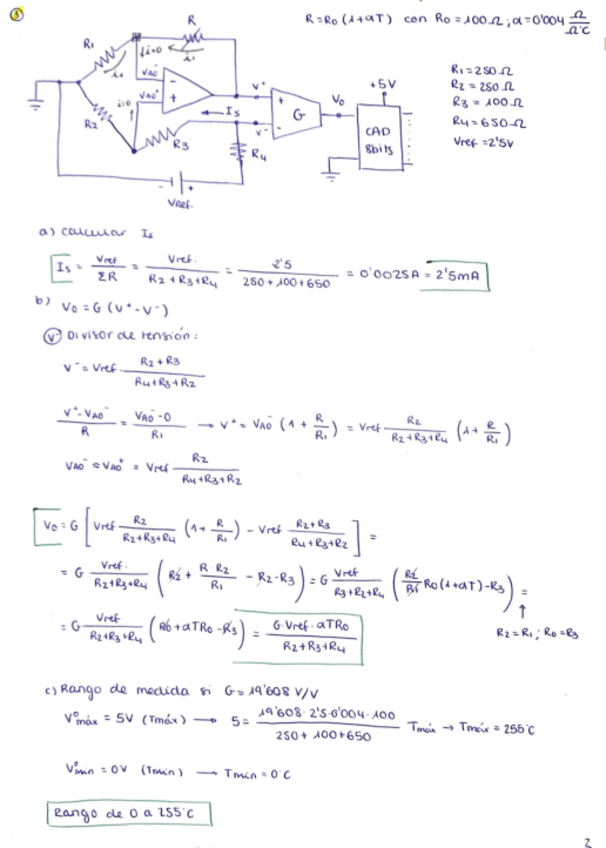 ③
R = R₀ (1+αT) con R₀ = 100 Ω ; α = 0'004 Ω/Ω°C
R
R₁
i=0
VAO⁻
VAO⁺
i=0
R₂
R₃
Is
V⁺
V⁻
G
V₀
R₄
+5V
CAD
8bits
VREF.
R₁ = 250 Ω
R₂ = 250 Ω
R₃ = 100 Ω
R₄ = 650 Ω
Vref = 2'5V
a) calcular Is
Is = Vref / ΣR = Vref. / (R₂+R₃+R₄) = 2'5 / (250+100+650) = 0'0025A = 2'5mA
b) V₀ = G (V⁺-V⁻)
V⁻ Divisor de tensión:
V⁻ = Vref · (R₂+R₃) / (R₄+R₃+R₂)
(V⁺-VAO⁻) / R = (VAO⁻-0) / R₁ → V⁺ = VAO⁻ (1 + R/R₁) = Vref R₂ / (R₂+R₃+R₄) (1 + R/R₁)
VAO⁻ ≈ VAO⁺ = Vref R₂ / (R₄+R₃+R₂)
V₀ = G [ Vref R₂ / (R₂+R₃+R₄) (1 + R/R₁) - Vref (R₂+R₃) / (R₄+R₃+R₂) ] =
= G Vref. / (R₂+R₃+R₄) (R₂ + R·R₂/R₁ - R₂-R₃) = G Vref / (R₃+R₂+R₄) (R₂/R₁ R₀(1+αT) - R₃) =
R₂=R₁ ; R₀=R₃
= G Vref / (R₂+R₃+R₄) (R₀+αTR₀ - R₃) = G·Vref·αTR₀ / (R₂+R₃+R₄)
c) Rango de medida si G = 19'608 V/V
V₀máx = 5V (Tmáx) → 5 = 19'608·2'5·0'004·100 / (250+100+650) Tmáx → Tmáx = 255°C
V₀min = 0V (Tmin) → Tmin = 0°C
Rango de 0 a 255°C
2